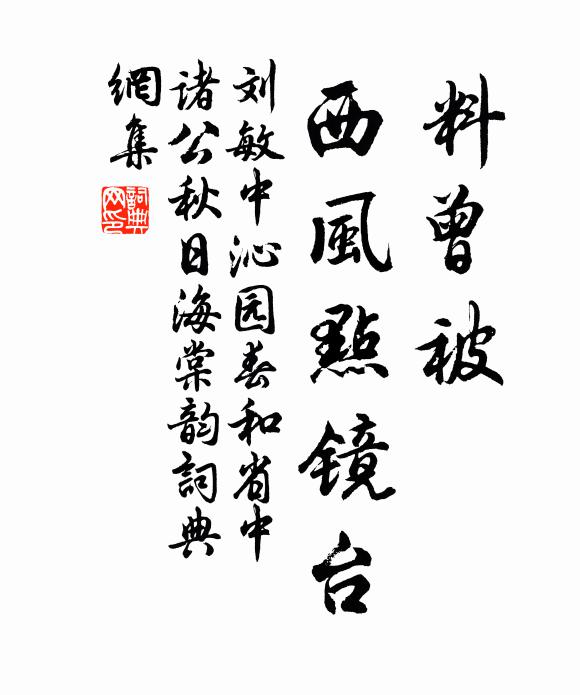 料曾被
西風點镜台
刘敏中沁园春和省中
诸公秋日海棠韵詞典
網集
詞典
网印